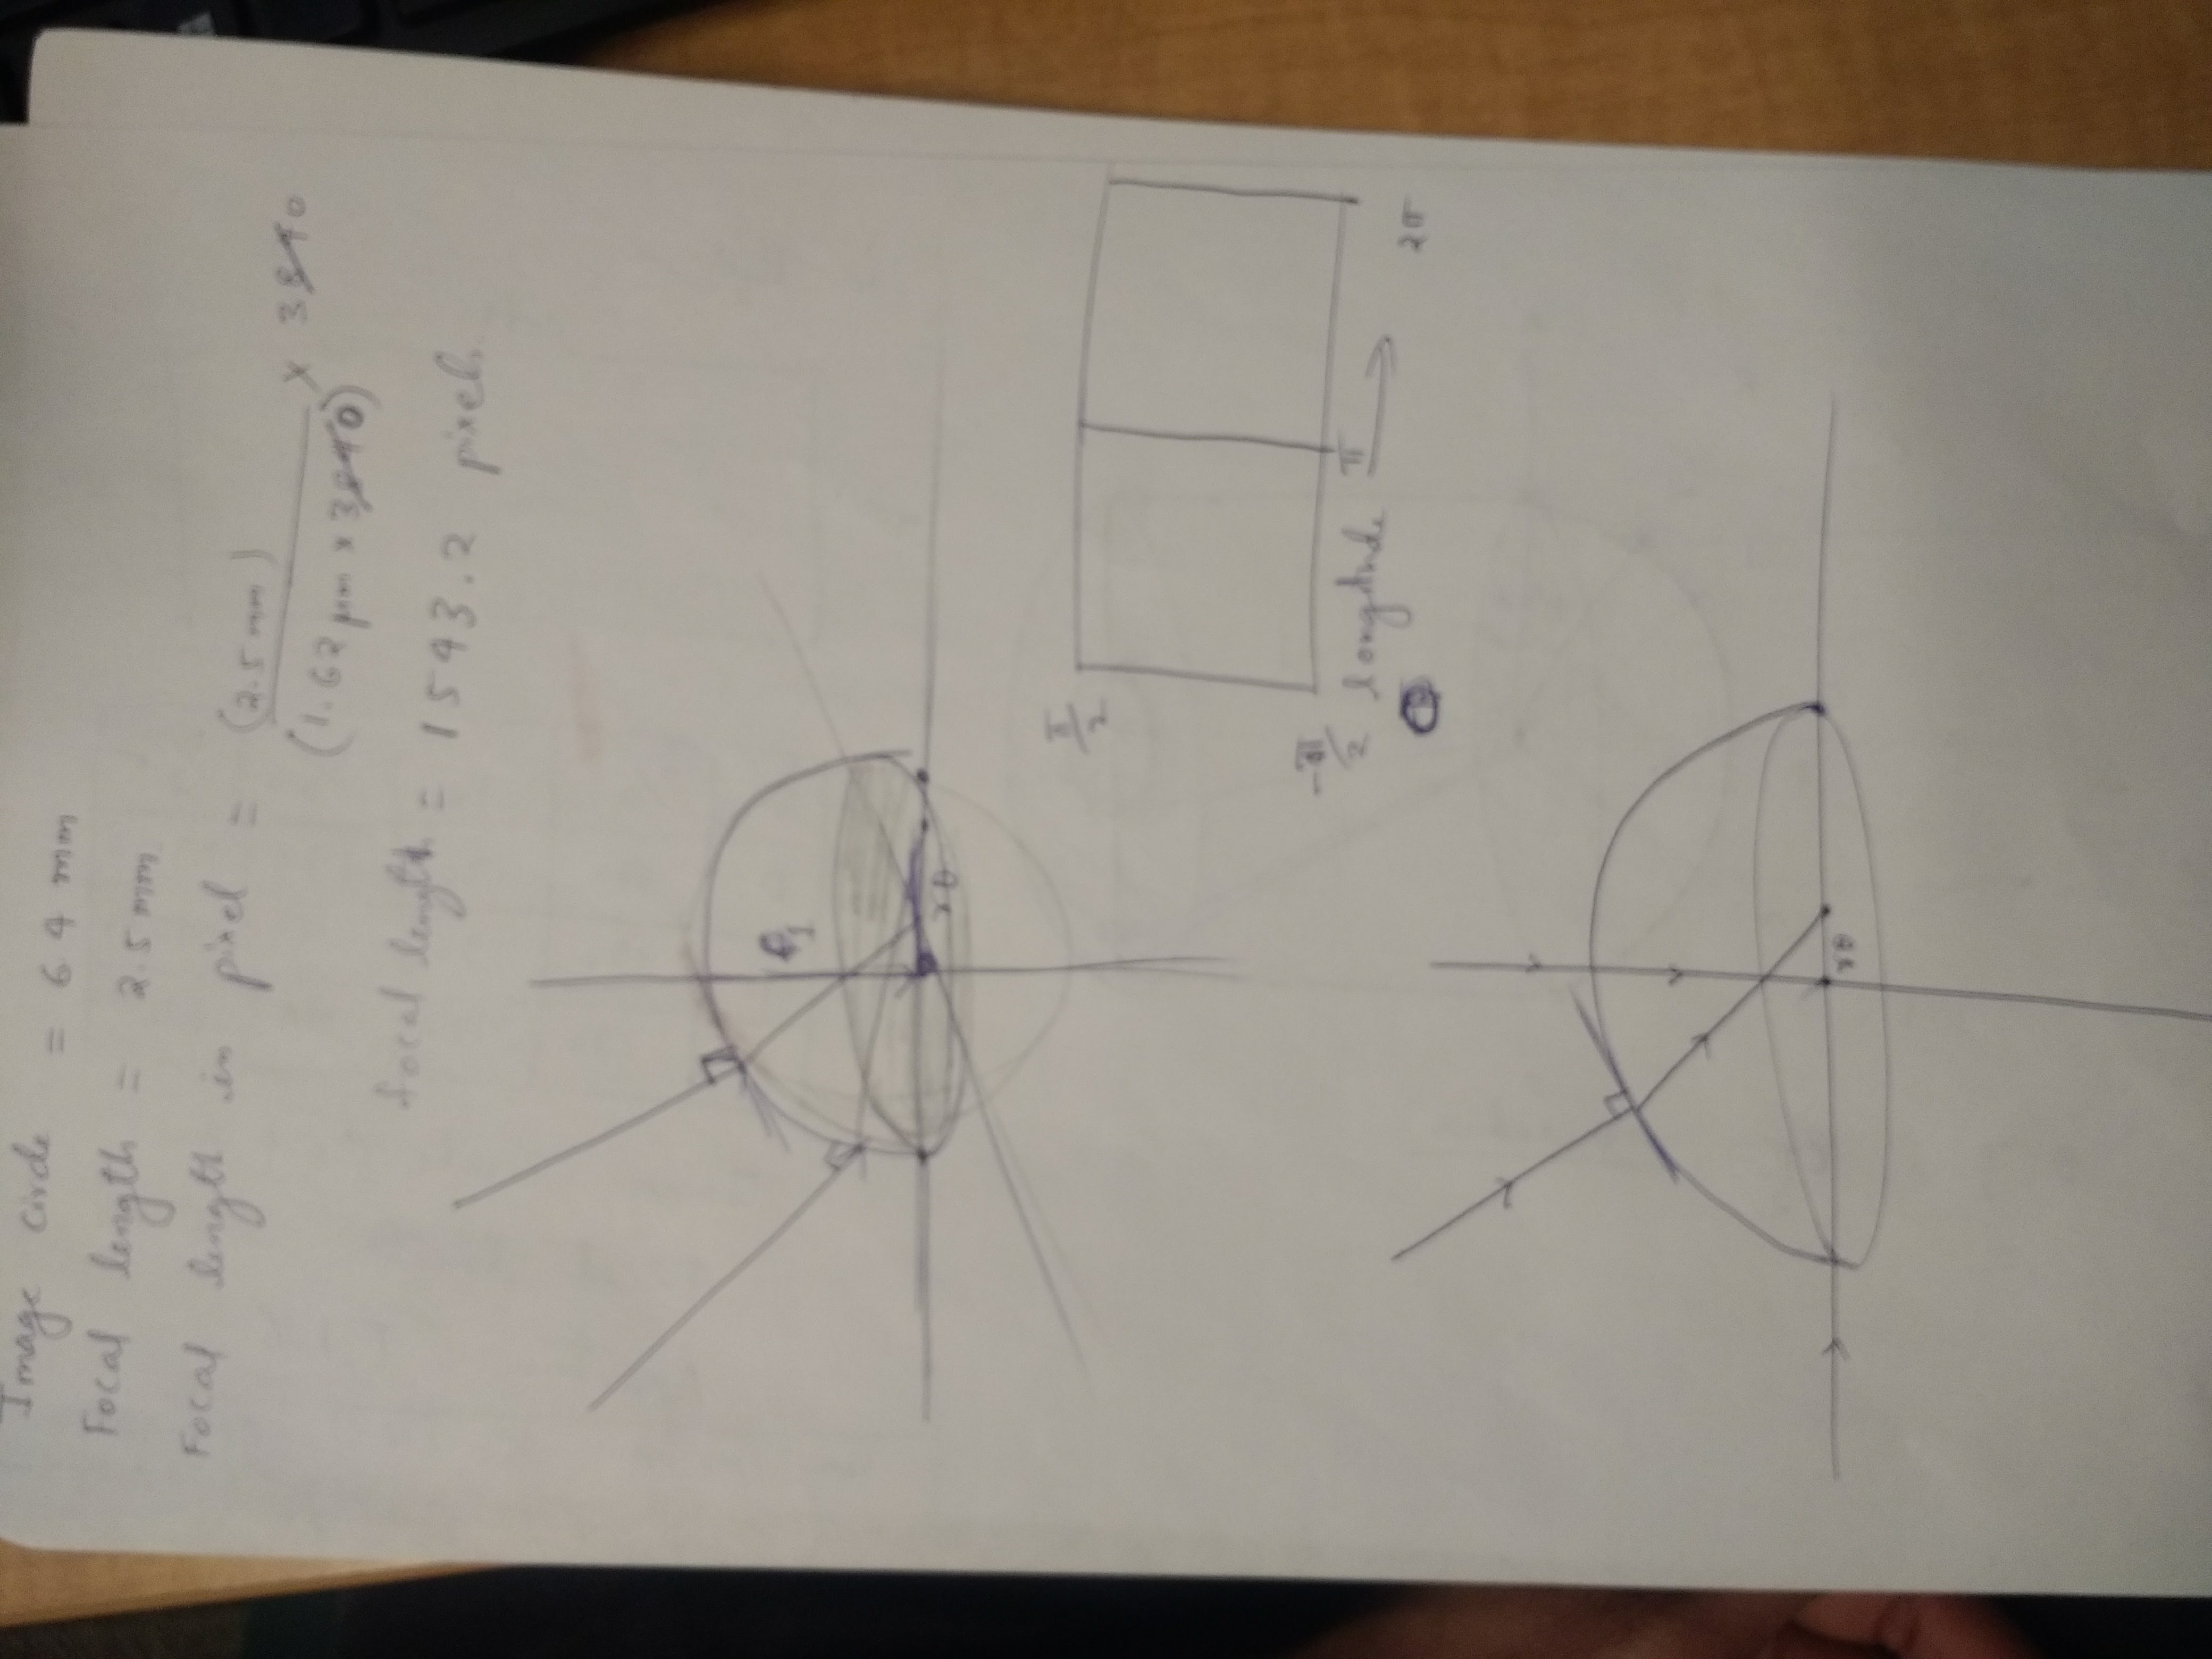 Image circle = 6.4 mm
Focal length = 2.5 mm
Focal length in pixel = (2.5 mm) / (1.62 µm x 3840) x 3840
focal length = 1543.2 pixels
θ1
rθ
π/2
-π/2
longitude
π
2π
rθ